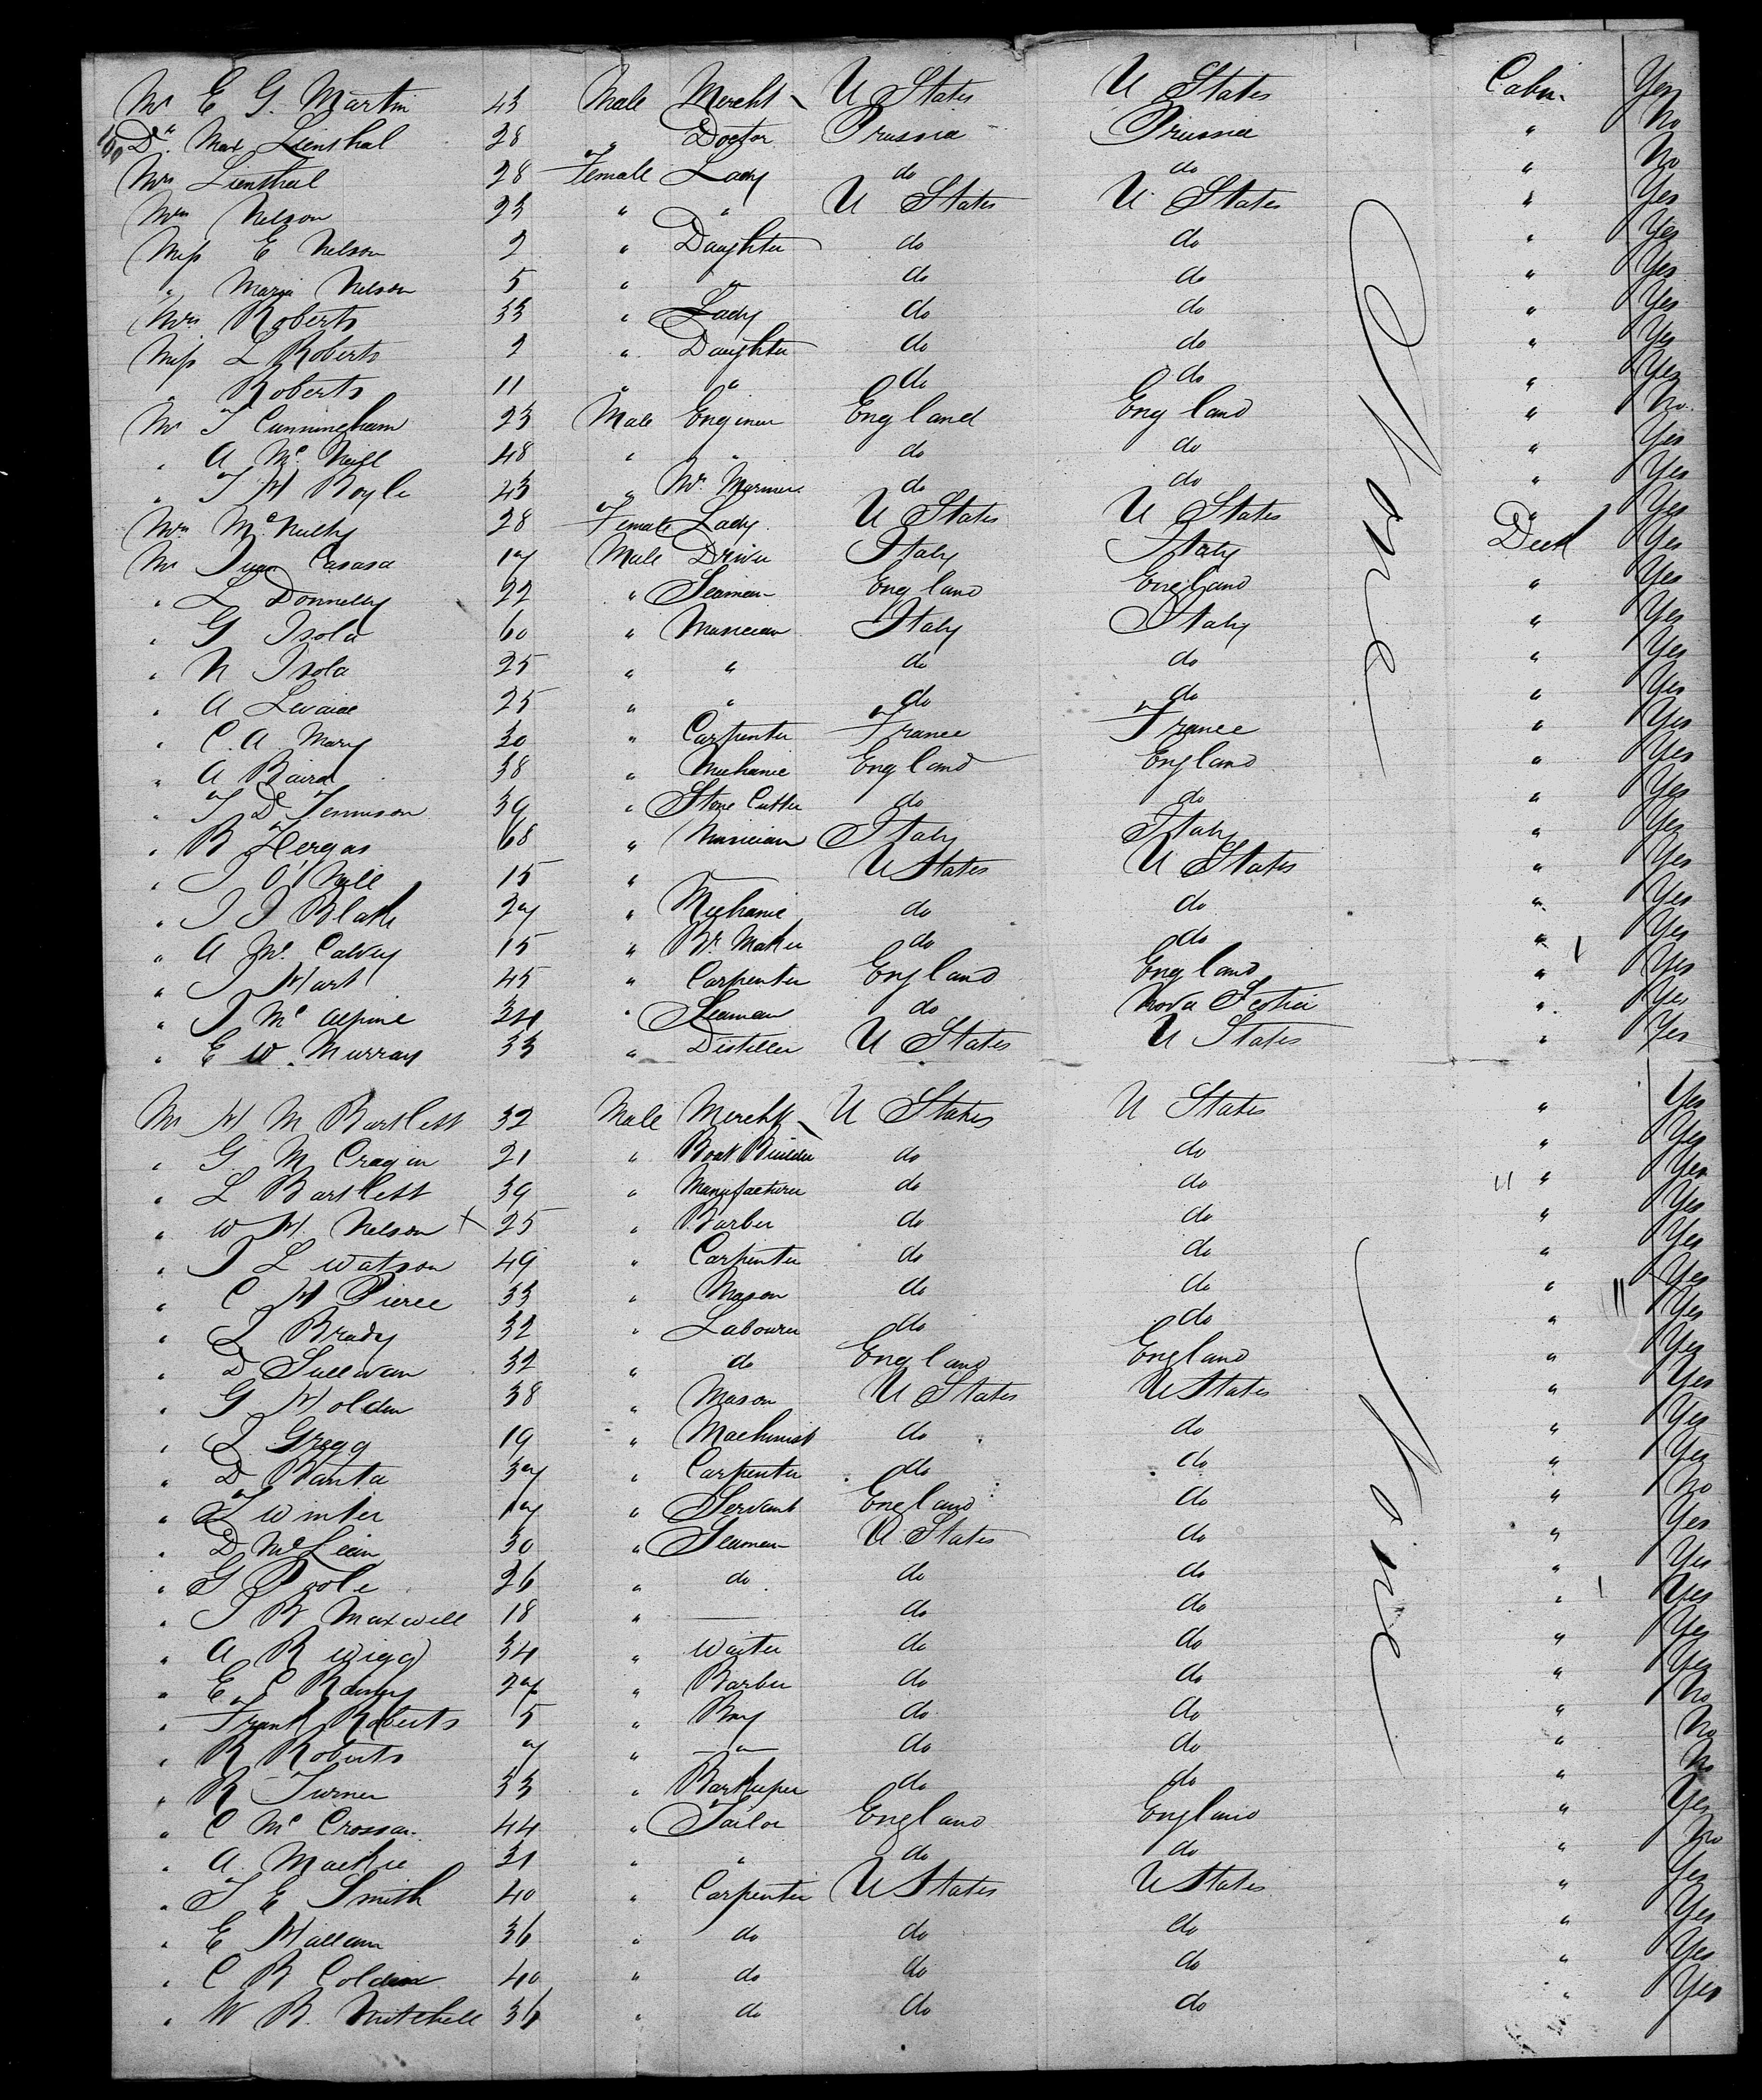 Mr E G. Martin 43 Male Mercht U States U States Cabin Yes
100 Dr. Max Lienthal 28 " Doctor Prussia Prussia " No
Mrs Lienthal 28 Female Lady do do " No
Mrs Nelson 23 " " U States U States " Yes
Miss E Nelson 2 " Daughter do do " Yes
" Maria Nelson 5 " " do do " Yes
Mrs Roberts 33 " Lady do do " Yes
Miss L Roberts 2 " Daughter do do " Yes
" Roberts 11 " " do do " Yes
Mr T Cunningham 23 Male Engineer England England " No.
" A Mc Neill 48 " " do do " Yes
" T H Boyle 43 " Mr. Mariner do do " Yes
Mrs McNulty 28 Female Lady U States U States " Yes
Mr Juan Casasa 17 Male Driver Italy Italy Deck Yes
" L Donnelly 22 " Seaman England England " Yes
" G Isola 60 " Musician Italy Italy " Yes
" N Isola 25 " " do do " Yes
" A 25 " " do do " Yes
" C. A. Mary 30 " Carpenter France France " Yes
" A Baird 38 " Mechanic England England " Yes
" T D Tennison 39 " Stone Cutter do do " Yes
" B 68 " Musician Italy Italy " Yes
" J O Neill 15 " — U States U States " Yes
" J J Blake 27 " Mechanic do do " Yes
" A Mc. Calvey 15 " Br. Maker do do " Yes
" J Hart 45 " Carpenter England England " Yes
" J Mc Alpine 24 " Seaman do Nova Scotia " Yes
" E W. Murray 33 " Distiller U States U States " Yes
Mr H M Bartlett 32 Male Mercht U States U States " Yes
" G. M Cragin 21 " Boat Builder do do " Yes
" L Bartlett 39 " Manufacturer do do " Yes
" W H Nelson X 25 " Barber do do " Yes
" J L Watson 49 " Carpenter do do " Yes
" C H Pierce 33 " Mason do do " Yes
" J Brady 32 " Labourer do do " Yes
" D Sullivan 32 " do England England " Yes
" G Holden 38 " Mason U States U States " Yes
" J. Gregg 19 " Machinist do do " Yes
" D Banta 37 " Carpenter do do " Yes
" T Winter 17 " Servant England do " No
" D McLean 30 " Seaman U. States do " Yes
" G Poole 26 " do do do " Yes
" J B Maxwell 18 " — do do " Yes
" A R Wigg 34 " Waiter do do " Yes
" E. C 27 " Barber do do " Yes
" Frank Roberts 5 " Boy do do " No
" R Roberts 7 " " do do " No
" R Turner 33 " Barkeeper do do " No
" C Mc Crossan 44 " Tailor England England " Yes
" A. Mackie 31 " " do do " No
" T E Smith 40 " Carpenter U States U States " Yes
" E Hallam 36 " do do do " Yes
" C B 40 " do do do " Yes
" W B. Mitchell 36 " do do do " Yes
None
None